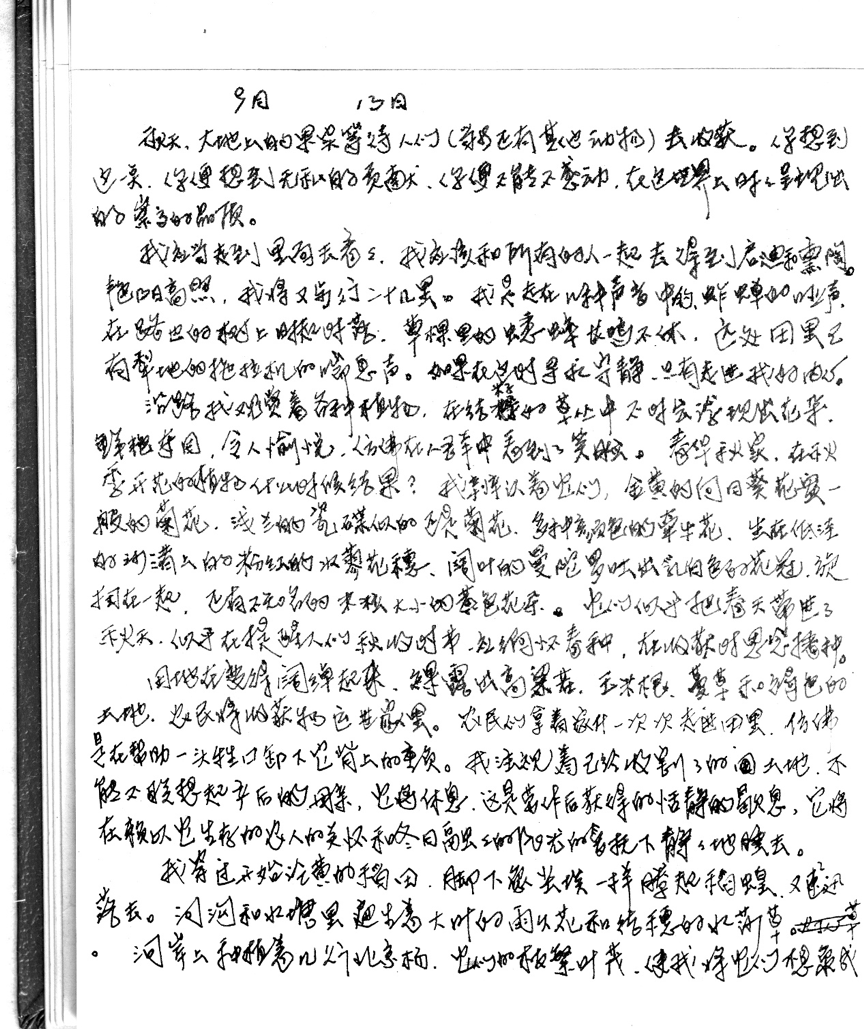 9月 13日
秋天，大地上的果实等待人们（当然还有其它动物）去收获。你想到
这点，你便想到无私的贡献，你便不能不感动，在这世界上时时呈现出
的崇高的品质。
我应当走到田间去看看，我应该和所有的人一起去得到启迪和熏陶。
艳阳高照，我将又步行二十几里。我是走在昆虫声音中的，蚱蝉的叫声，
在路边的树上时起时落，草棵里的蟋蟀长鸣不休，远处田里已
有犁地的拖拉机的喘息声。如果在这时寻求宁静，只有走进我的内心。
沿路我观赏着各种植物，在结籽的草丛中不时会发现出花朵，
鲜艳夺目，令人愉悦，仿佛在人群中看到了笑脸。春华秋实，在秋
季开花的植物什么时候结果？我深深认为它们，金黄的向日葵花盘一
般的菊花，浅兰的瓷碟似的也是菊花，多种颜色的牵牛花，生在低洼
的河沟上的粉红的水蓼花穗，阔叶的曼陀罗吐出乳白色的花冠，旋
扭在一起，还有不知名的米粒大小的黄色花朵。它们似乎把春天带进了
秋天，似乎在提醒人们秋收时节，勿忘怀春种，在收获时思念播种。
田地在变得阔绰起来，裸露出高粱茬、玉米根、蔓草和褐色的
土地，农民将收获物运进家里。农民们拿着家什一次次走进田里，仿佛
是在帮助一头牲口卸下它背上的重负。我注视着已经收割了的田土地，不
能不联想起产后的母亲，它将休息，这是劳作后获得的恬静的歇息，它将
在赖以它生存的农人的关怀和冬日高照的阳光的爱抚下静静地睡去。
我穿过开始泛黄的稻田，脚下像尘埃一样腾起稻蝗，又迅速
落去。河沟和水塘里生着大叶的雨久花和结穗的水葫草。
河岸上种植着几行北京杨，它们的枝繁叶茂，使我将它们想象成